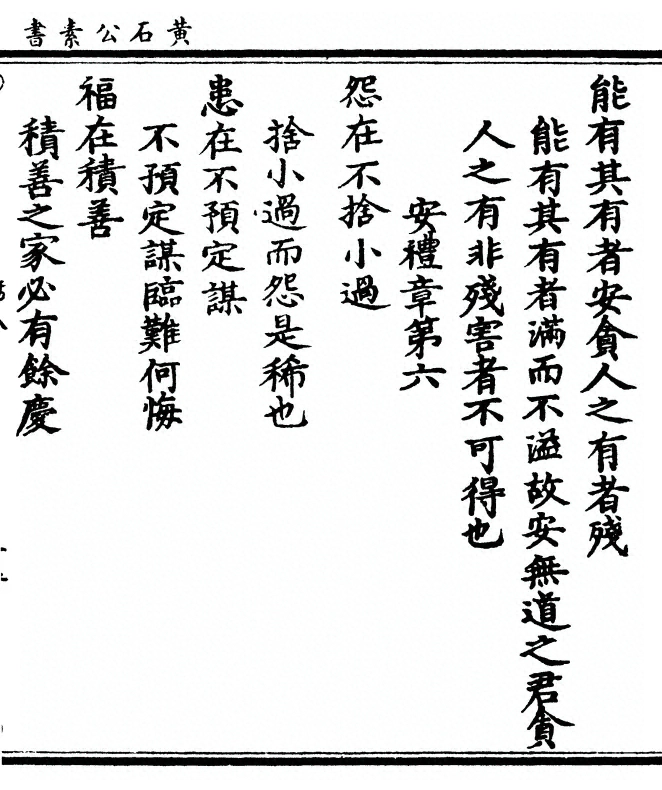 黃石公素書
能有其有者安貪人之有者殘
能有其有者滿而不溢故安無道之君貪
人之有非殘害者不可得也
安禮章第六
怨在不捨小過
捨小過而怨是稀也
患在不預定謀
不預定謀臨難何悔
福在積善
積善之家必有餘慶